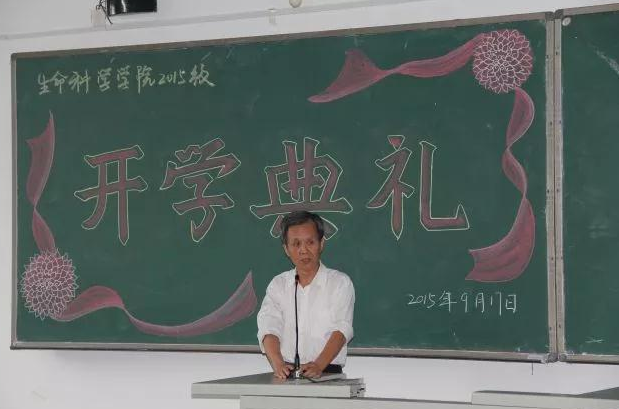 生命科学学院2015级
开学典礼
2015年9月17日